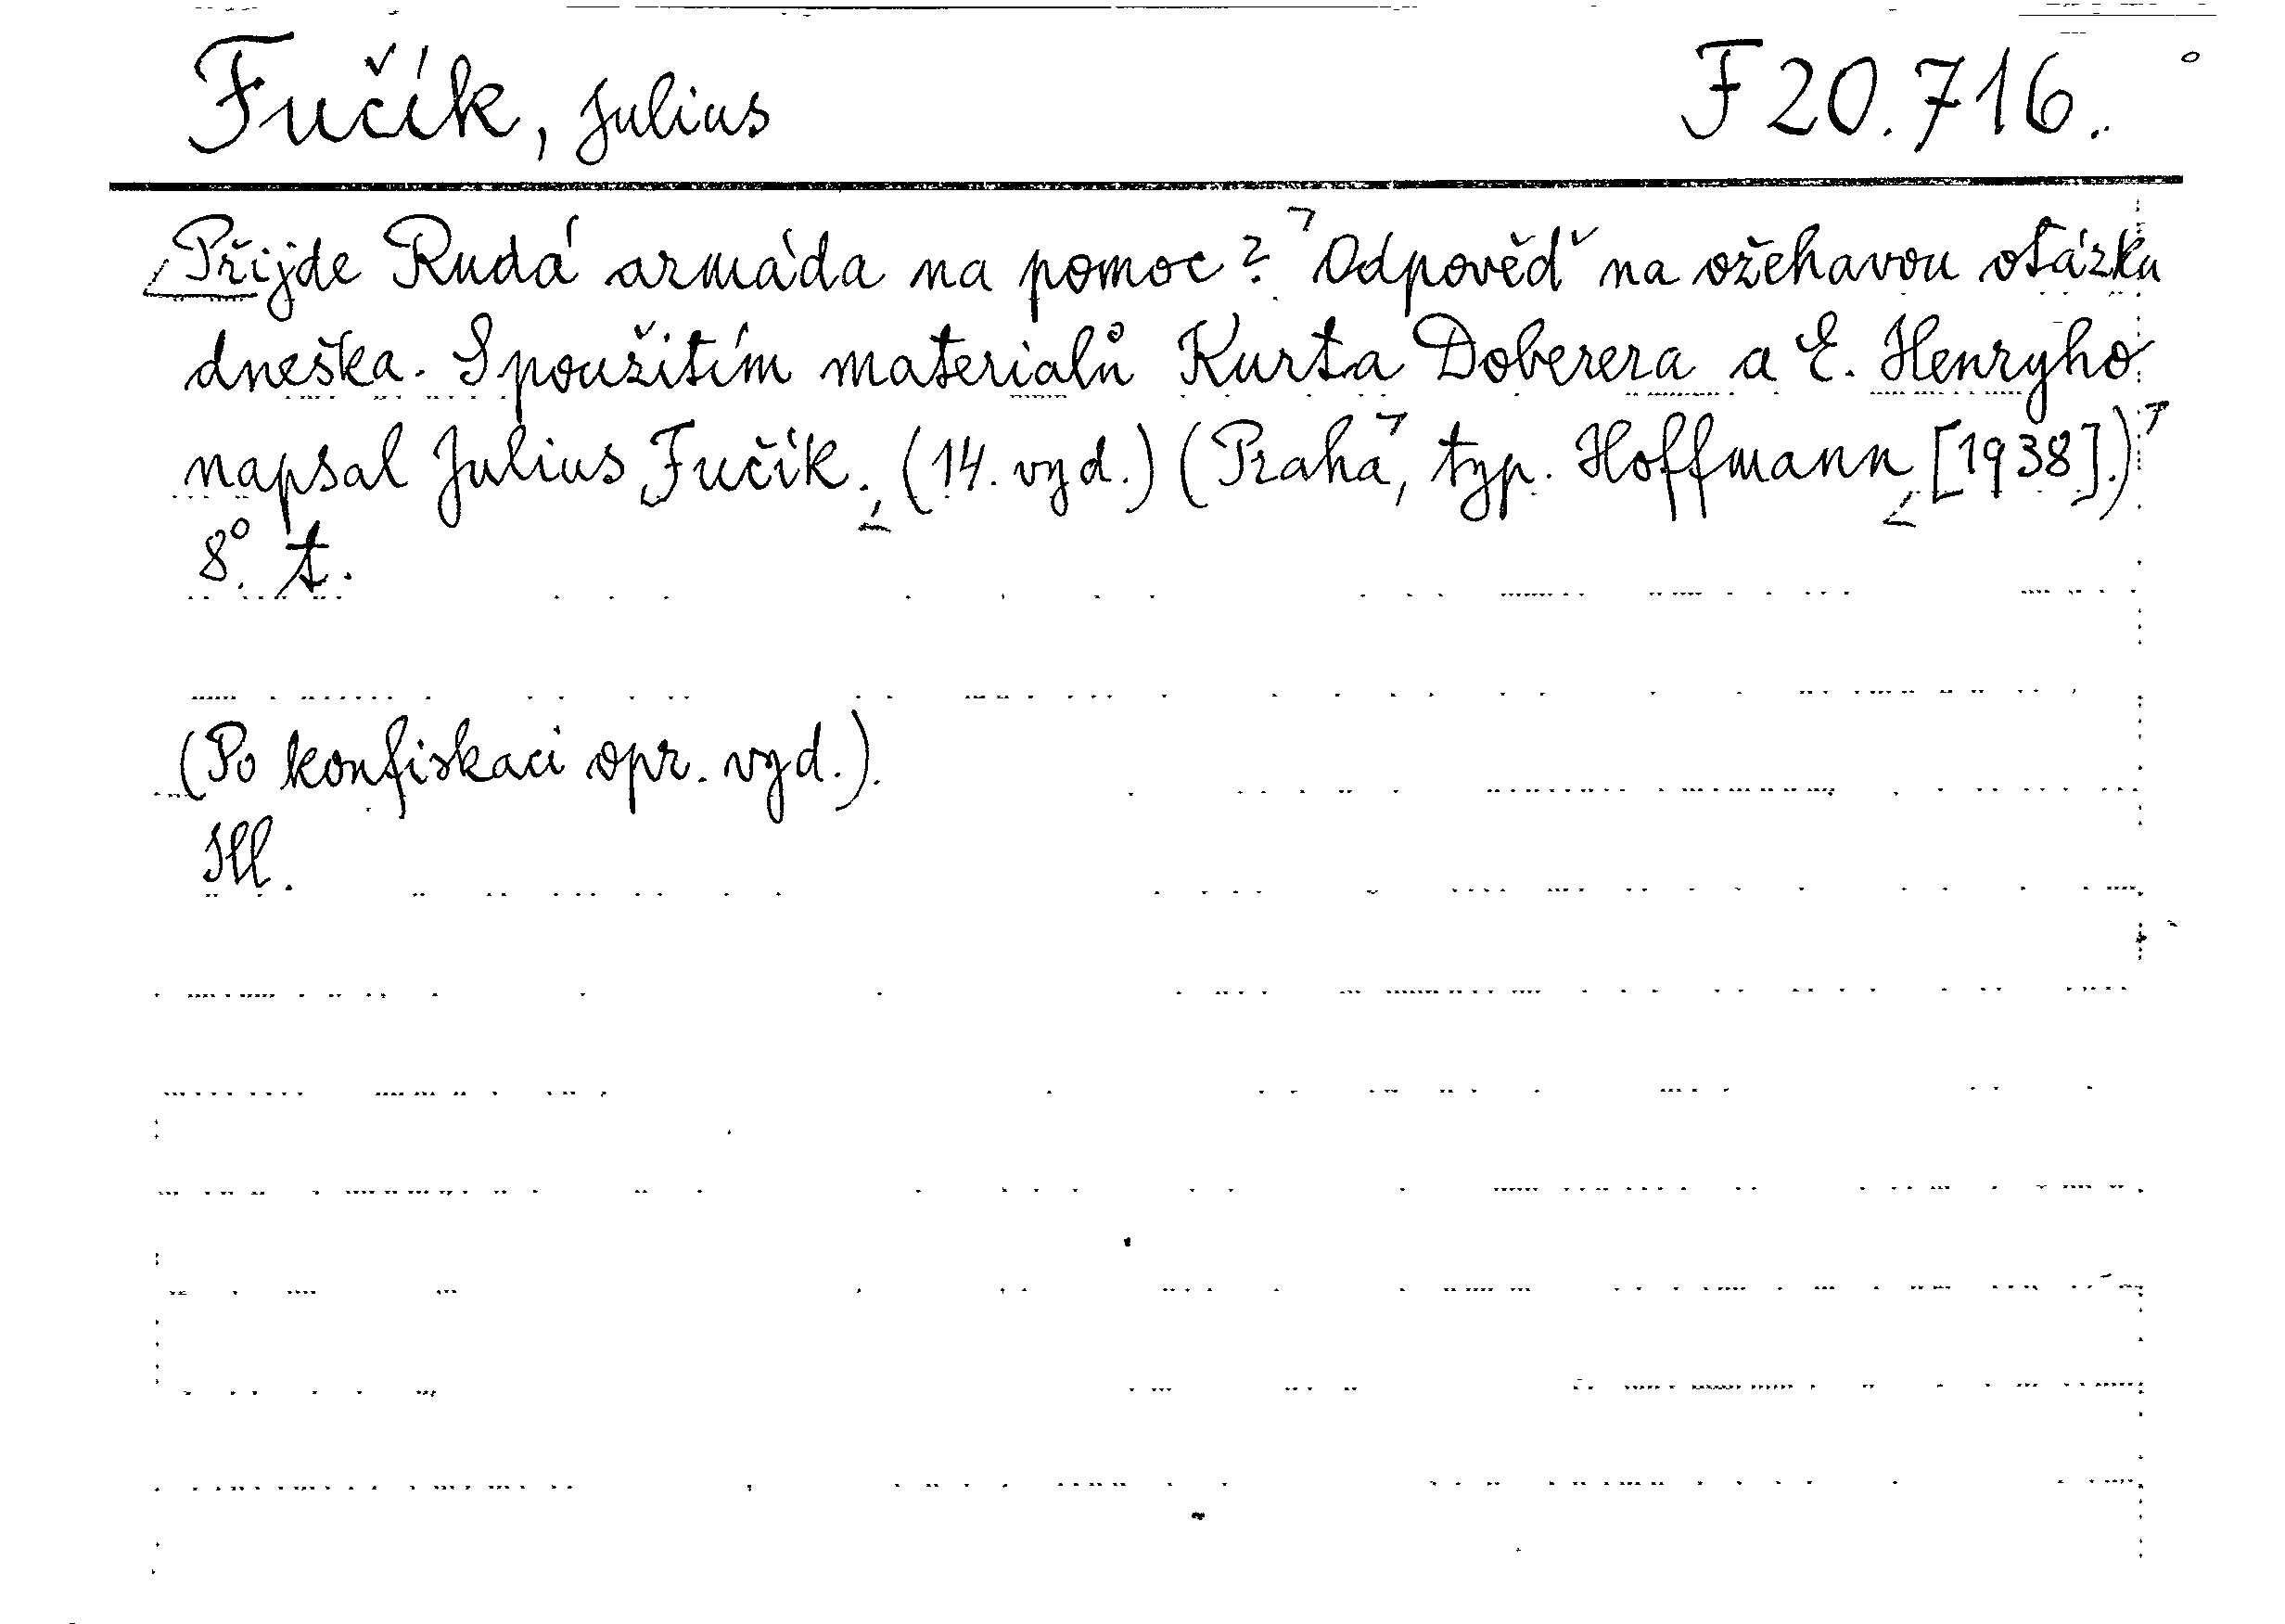 Fučík, Julius F 20.716.
Přijde Rudá armáda na pomoc? Odpověď na ožehavou otázku
dneška. S použitím materialů Kurta Doberera a E. Henryho
napsal Julius Fučík. (14. vyd.) (Praha, typ. Hoffmann [1938].)
8°. t.
(Po konfiskaci opr. vyd.).
Ill.